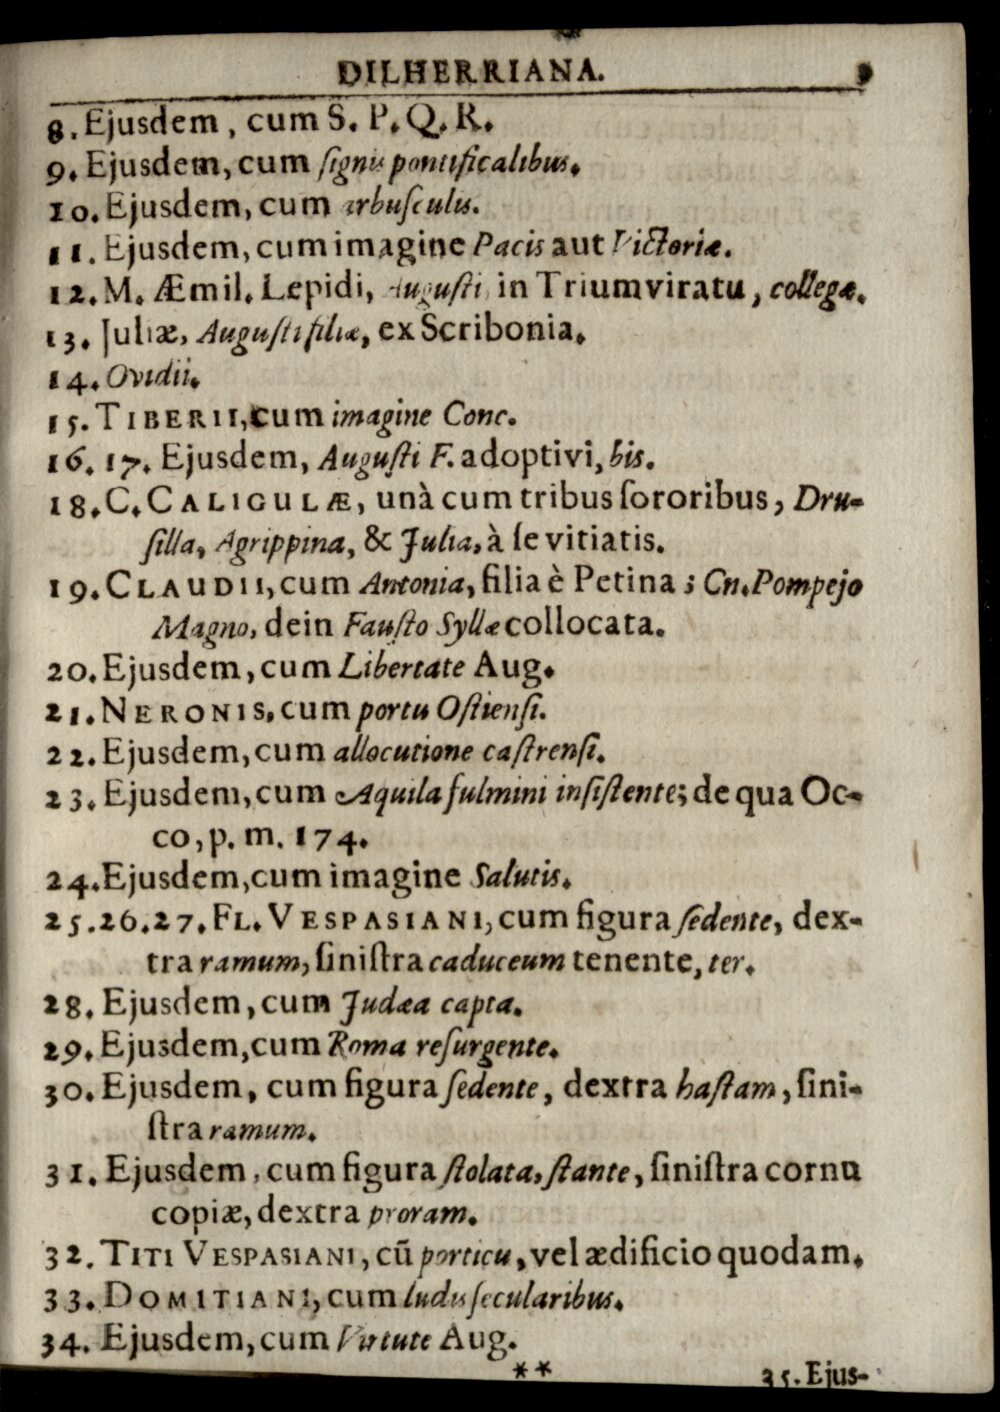 DILHERRIANA. 9
8. Ejusdem, cum S. P. Q. R.
9. Ejusdem, cum ſignis pontificalibus.
10. Ejusdem, cum arbuſculis.
11. Ejusdem, cum imagine Pacis aut Victoriæ.
12. M. Æmil. Lepidi, Auguſti in Triumviratu, collegæ.
13. Juliæ, Auguſti filiæ, ex Scribonia.
14. Ovidii.
15. TIBERII, cum imagine Conc.
16. 17. Ejusdem, Auguſti F. adoptivi, bis.
18. C. CALIGULÆ, unà cum tribus ſororibus, Dru-
ſilla, Agrippina, & Julia, à ſe vitiatis.
19. CLAUDII, cum Antonia, filia è Petina; Cn. Pompejo
Magno, dein Fauſto Syllæ collocata.
20. Ejusdem, cum Libertate Aug.
21. NERONIS, cum portu Oſtienſi.
22. Ejusdem, cum allocutione caſtrenſi.
23. Ejusdem, cum Aquila fulmini inſiſtente; de qua Oc-
co, p. m. 174.
24. Ejusdem, cum imagine Salutis.
25. 26. 27. FL. VESPASIANI, cum figura ſedente, dex-
tra ramum, ſiniſtra caduceum tenente, ter.
28. Ejusdem, cum Judæa capta.
29. Ejusdem, cum Roma reſurgente.
30. Ejusdem, cum figura ſedente, dextra haſtam, ſini-
ſtra ramum.
31. Ejusdem, cum figura ſtolata, ſtante, ſiniſtra cornu
copiæ, dextra proram.
32. TITI VESPASIANI, cū porticu, vel ædificio quodam.
33. DOMITIANI, cum ludis ſecularibus.
34. Ejusdem, cum Virtute Aug.
** 35. Ejus-